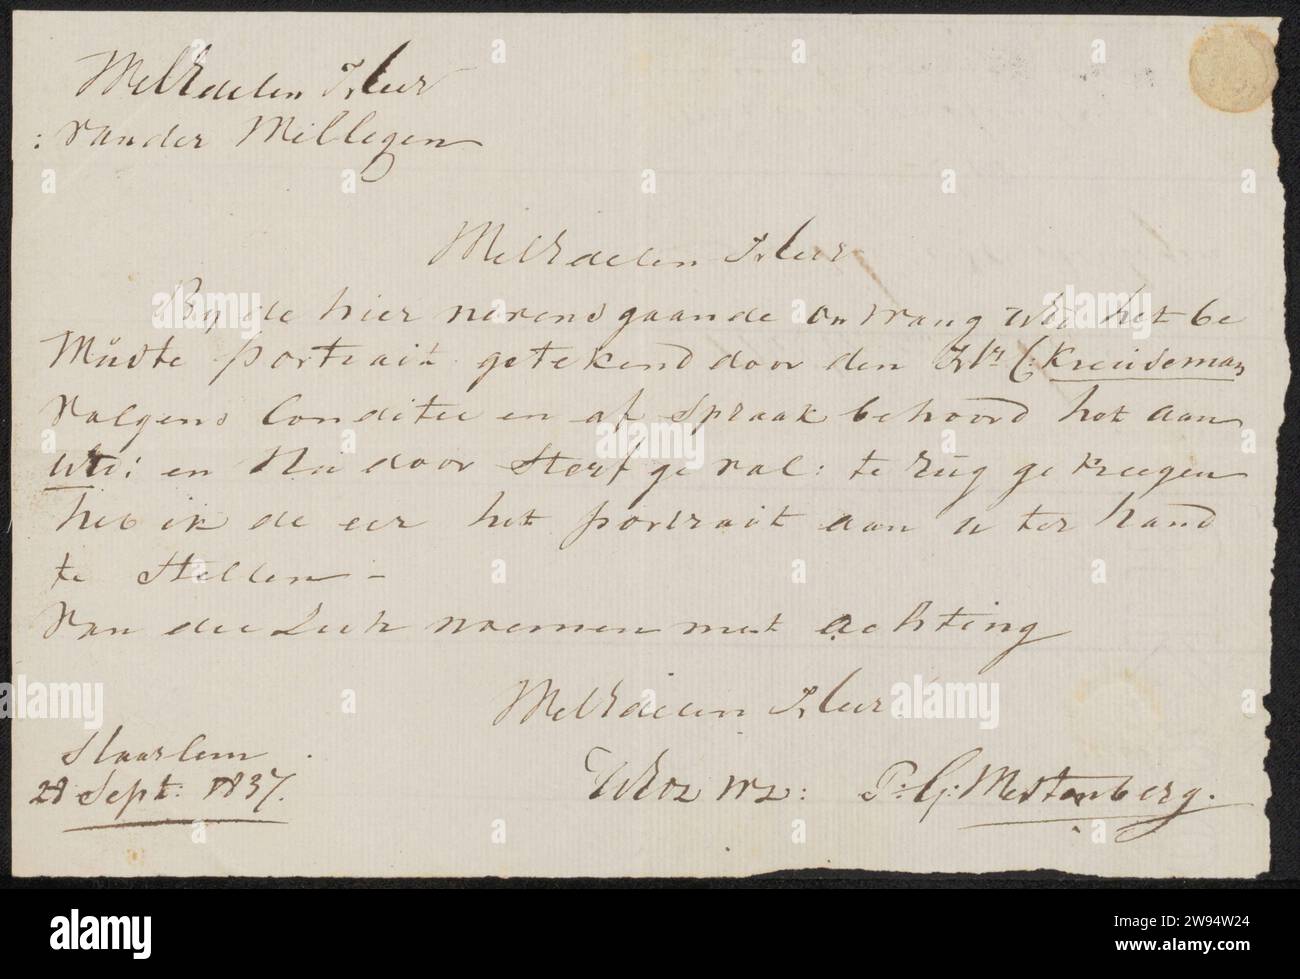 WelEdelen Heer
: van der Millegen
WelEdelen Heer
By de hier nevens gaande ontvang UEd het be
Muste portrait getekend door den Hr C: Kreuseman
volgens Conditie en af Spraak behoord het aan
UEd: en Na door Sterf geval: te rug gekreegen
heb ik de eer het portrait aan u ter hand
te Stellen -
van die zich noemen met achting
WelEdelen Heer
Haarlem
28 Sept: 1837.
UEd
P: G: Westenberg.
alamy
Image ID: 2W94W24
www.alamy.com